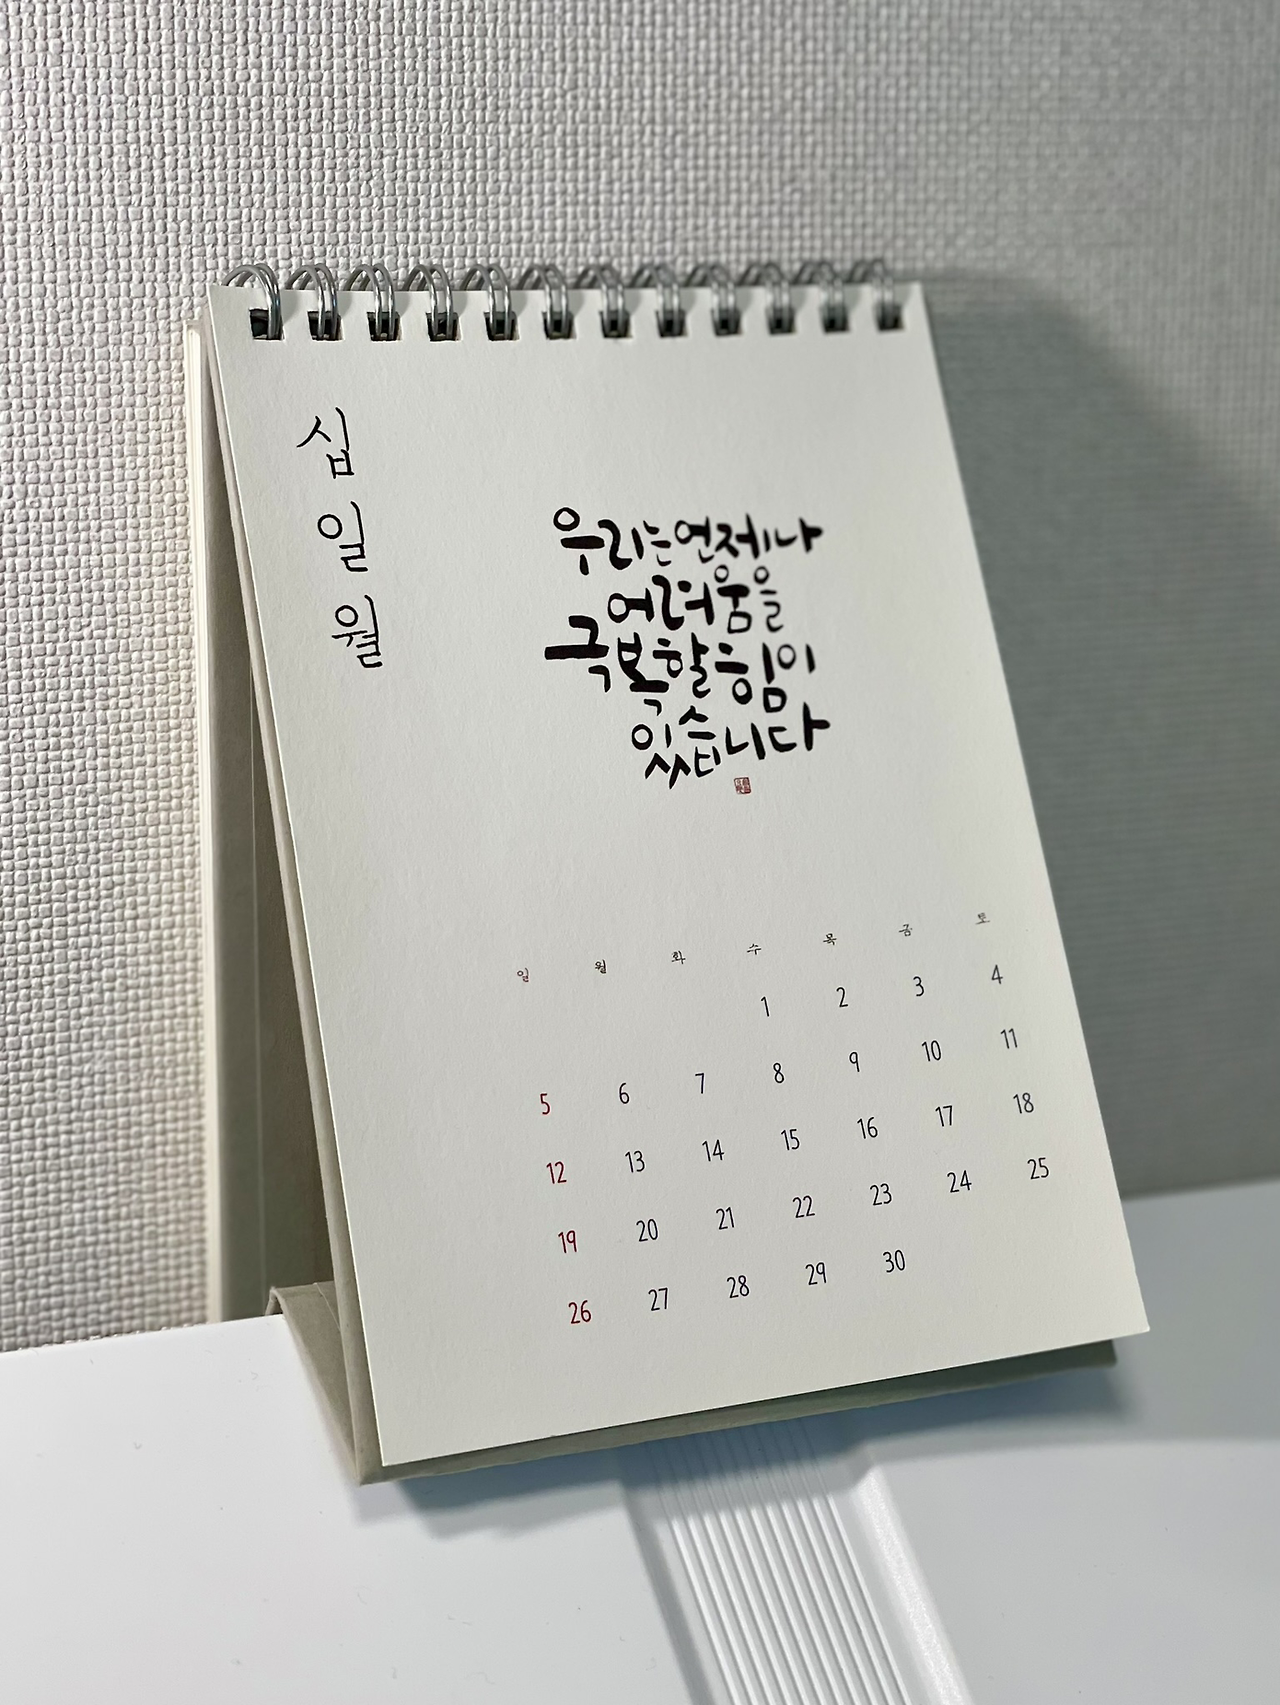 십일월
우리는 언제나
어려움을
극복할 힘이
있습니다
일 월 화 수 목 금 토
1 2 3 4
5 6 7 8 9 10 11
12 13 14 15 16 17 18
19 20 21 22 23 24 25
26 27 28 29 30